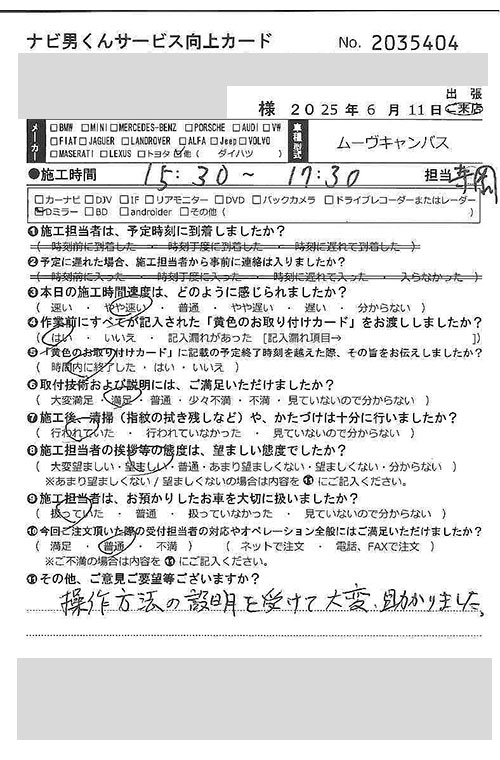 ナビ男くんサービス向上カード No. 2035404
様 2025年 6 月 11日 出 張 ・ ご来店
メーカー □BMW □MINI □MERCEDES-BENZ □PORSCHE □AUDI □VW 車種・型式 ムーヴキャンバス
□FIAT □JAGUER □LANDROVER □ALFA □Jeep □VOLVO
□MASERATI □LEXUS □トヨタ ☑他 ( ダイハツ )
●施工時間 15:30 ~ 17:30 担当 寺岡
□カーナビ □DJV □IF □リアモニター □DVD □バックカメラ □ドライブレコーダーまたはレーダー
☑Dミラー □BD □androider □その他 ( )
❶施工担当者は、予定時刻に到着しましたか?
( 時刻前に到着した ・ 時刻丁度に到着した ・ 時刻に遅れて到着した )
❷予定に遅れた場合、施工担当者から事前に連絡は入りましたか?
( 時刻前に入った ・ 時刻丁度に入った ・ 時刻に遅れて入った ・ 入らなかった )
❸本日の施工時間速度は、どのように感じられましたか?
( 速い ・ やや速い ・ 普通 ・ やや遅い ・ 遅い ・ 分からない )
❹作業前にすべてが記入された「黄色のお取り付けカード」をお渡ししましたか?
( はい ・ いいえ ・ 記入漏れがあった [記入漏れ項目→ ])
❺「黄色のお取り付けカード」に記載の予定終了時刻を越えた際、その旨をお伝えしましたか?
( 時間内に終了した ・ はい ・ いいえ )
❻取付技術および説明には、ご満足いただけましたか?
( 大変満足 ・ 満足 ・ 普通 ・ 少々不満 ・ 不満 ・ 見ていないので分からない )
❼施工後、清掃(指紋の拭き残しなど)や、かたづけは十分に行いましたか?
( 行われていた ・ 行われていなかった ・ 見ていないので分からない )
❽施工担当者の挨拶等の態度は、望ましい態度でしたか?
( 大変望ましい ・ 望ましい ・ 普通 ・ あまり望ましくない ・ 望ましくない ・ 分からない )
※あまり望ましくない / 望ましくないの場合は内容を ⓫ にご記入ください。
❾施工担当者は、お預かりしたお車を大切に扱いましたか?
( 扱っていた ・ 普通 ・ 扱っていなかった ・ 見ていないので分からない )
❿今回ご注文頂いた際の受付担当者の対応やオペレーション全般にはご満足いただけましたか?
( 満足 ・ 普通 ・ 不満 ) ( ネットで注文 ・ 電話、FAXで注文 )
※ご不満の場合は内容を ⓫ にご記入ください。
⓫その他、ご意見ご要望等ございますか?
操作方法の説明を受けて大変、助かりました。